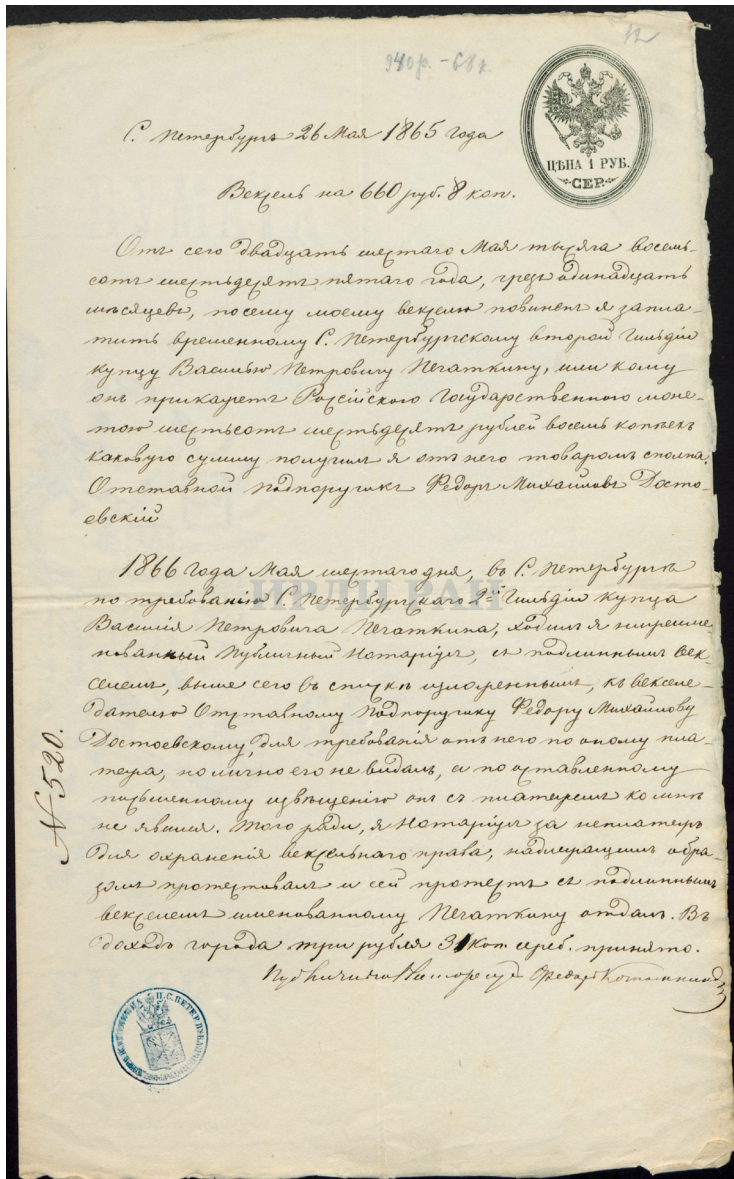 940р. – 68к.
12
ЦѢНА 1 РУБ.
СЕР.
С. Петербургъ 26 Мая 1865 года
Вексель на 660 руб. 8 коп.
Отъ сего двадцать шестаго Мая тысяча восемь-
сотъ шестьдесятъ пятаго года, чрезъ одинадцать
мѣсяцевъ, по сему моему векселю повиненъ я запла-
тить временному С. Петербургскому второй гильдіи
купцу Василью Петровичу Печаткину, или кому
онъ прикажетъ Россійскою Государственною моне-
тою шестьсотъ шестьдесятъ рублей восемь копѣекъ
каковую сумму получилъ я отъ него товаромъ сполна.
Отставной Подпоручикъ Федоръ Михайловъ Досто-
евскій
1866 года Мая шестаго дня, въ С. Петербургѣ
по требованію С. Петербургскаго 2ой Гильдіи купца
Василія Петровича Печаткина, ходилъ я нижеиме-
нованный Публичный Нотаріусъ, съ подлиннымъ век-
селемъ, выше сего въ спискѣ изложеннымъ, къ вексле-
дателю Отставному Подпоручику Федору Михайлову
Достоевскому, для требованія отъ него по оному пла-
тежа, но лично его не видалъ, а по оставленному
письменному извѣщенію онъ съ платежемъ ко мнѣ
не явился. Того ради, я Нотаріусъ за неплатежъ
для охраненія вексельнаго права, надлежащимъ обра-
зомъ протестовалъ и сей протестъ съ подлиннымъ
векселемъ именованному Печаткину отдалъ. Въ
доходъ города три рубля 31 коп. сереб. принято.
Публичный Нотаріусъ Федоръ
№ 520.
ИРЛИ РАН